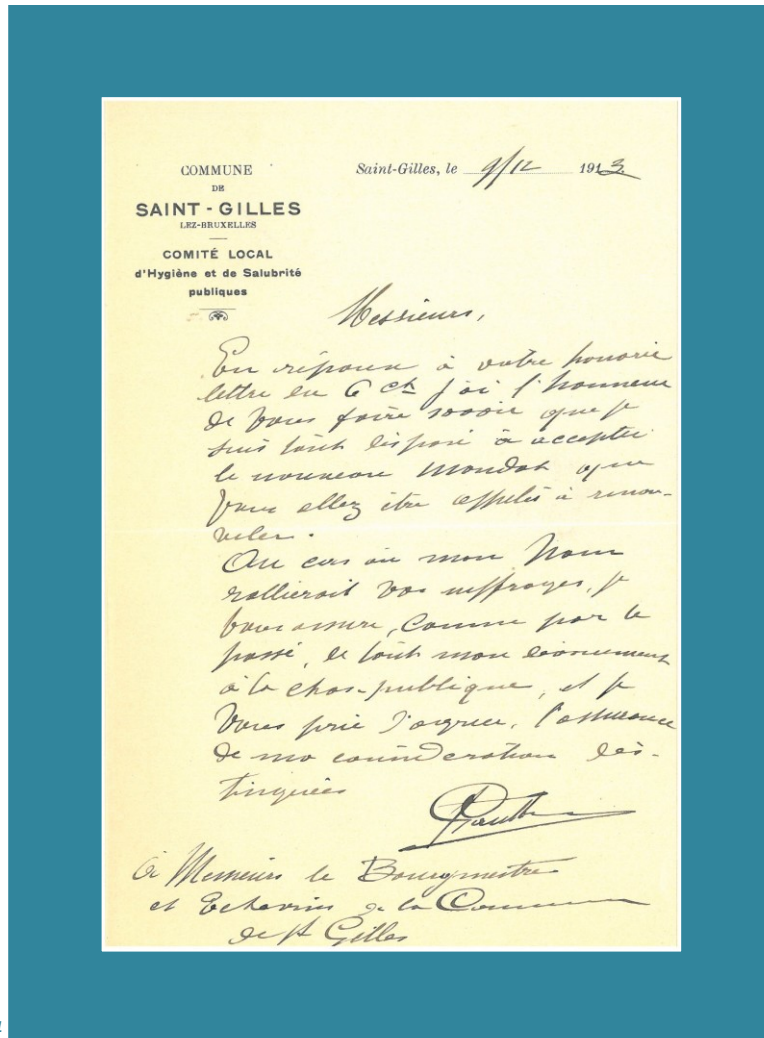 COMMUNE
DE
SAINT-GILLES
LEZ-BRUXELLES
COMITÉ LOCAL
d'Hygiène et de Salubrité
publiques
Saint-Gilles, le 9/12 1913
Messieurs,
En réponse à votre honorée
lettre du 6 ct j'ai l'honneur
de vous faire savoir que je
suis tout disposé à accepter
le nouveau mandat que
vous allez être appelés à renou-
veler.
Au cas où mon nom
rallierait vos suffrages, je
vous assure, comme par le
passé, de tout mon dévouement
à la chose publique, et je
vous prie d'agréer, l'assurance
de ma considération dis-
tinguées
à Messieurs le Bourgmestre
et Echevins de la Commune
de St Gilles